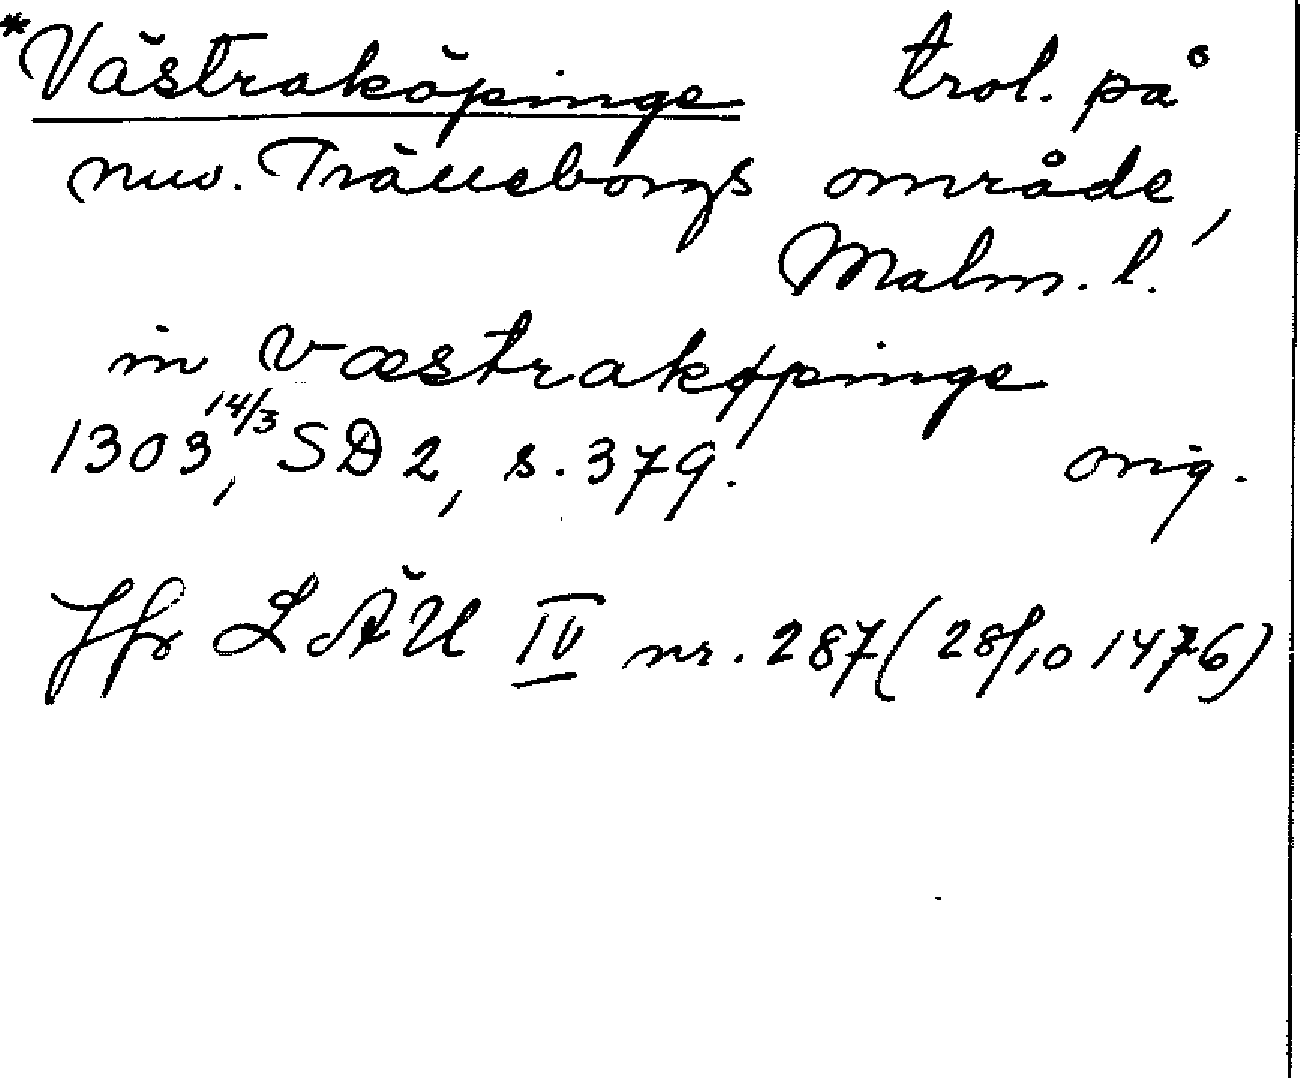 *Västraköpinge trol. på
nuv. Trälleborgs område,
Malm. l.
in Væstrakøpinge
1303 14/3, SD 2, s. 379. orig.
Jfr LÄU IV nr. 287 (28/10 1476)